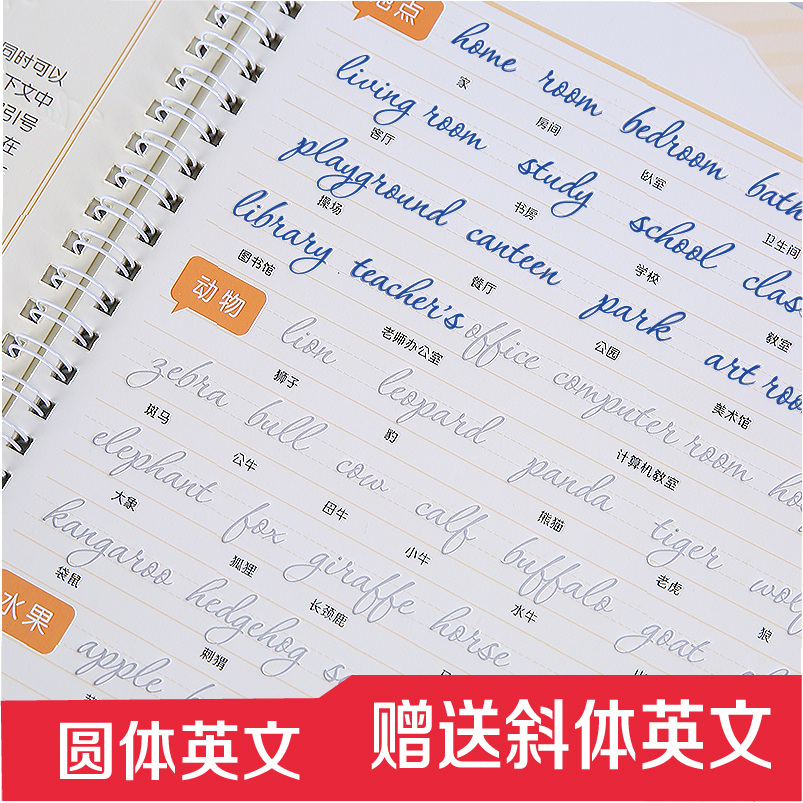 同时可以
下文中
引号
在
地点
home room bedroom bath
家 房间 卧室 卫生间
living room study school class
客厅 书房 学校 教室
playground canteen park art room
操场 餐厅 公园 美术馆
library teacher's office computer room
图书馆 老师办公室 计算机教室
动物
lion leopard panda tiger wolf
狮子 豹 熊猫 老虎 狼
zebra bull cow calf buffalo goat
斑马 公牛 母牛 小牛 水牛
elephant fox giraffe horse
大象 狐狸 长颈鹿
kangaroo hedgehog
袋鼠 刺猬
水果
apple
圆体英文
赠送斜体英文